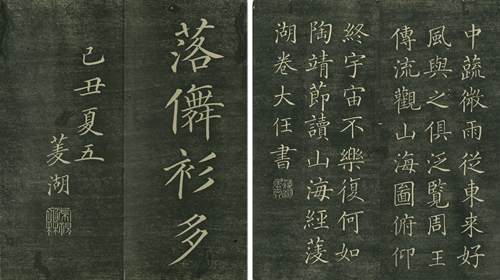 中蔬微雨從東来好
風與之俱泛覧周王
傳流觀山海圖俯仰
終宇宙不樂復何如
陶靖節讀山海經蓤
湖卷大任書
落儛衫多
己丑夏五
蓤湖